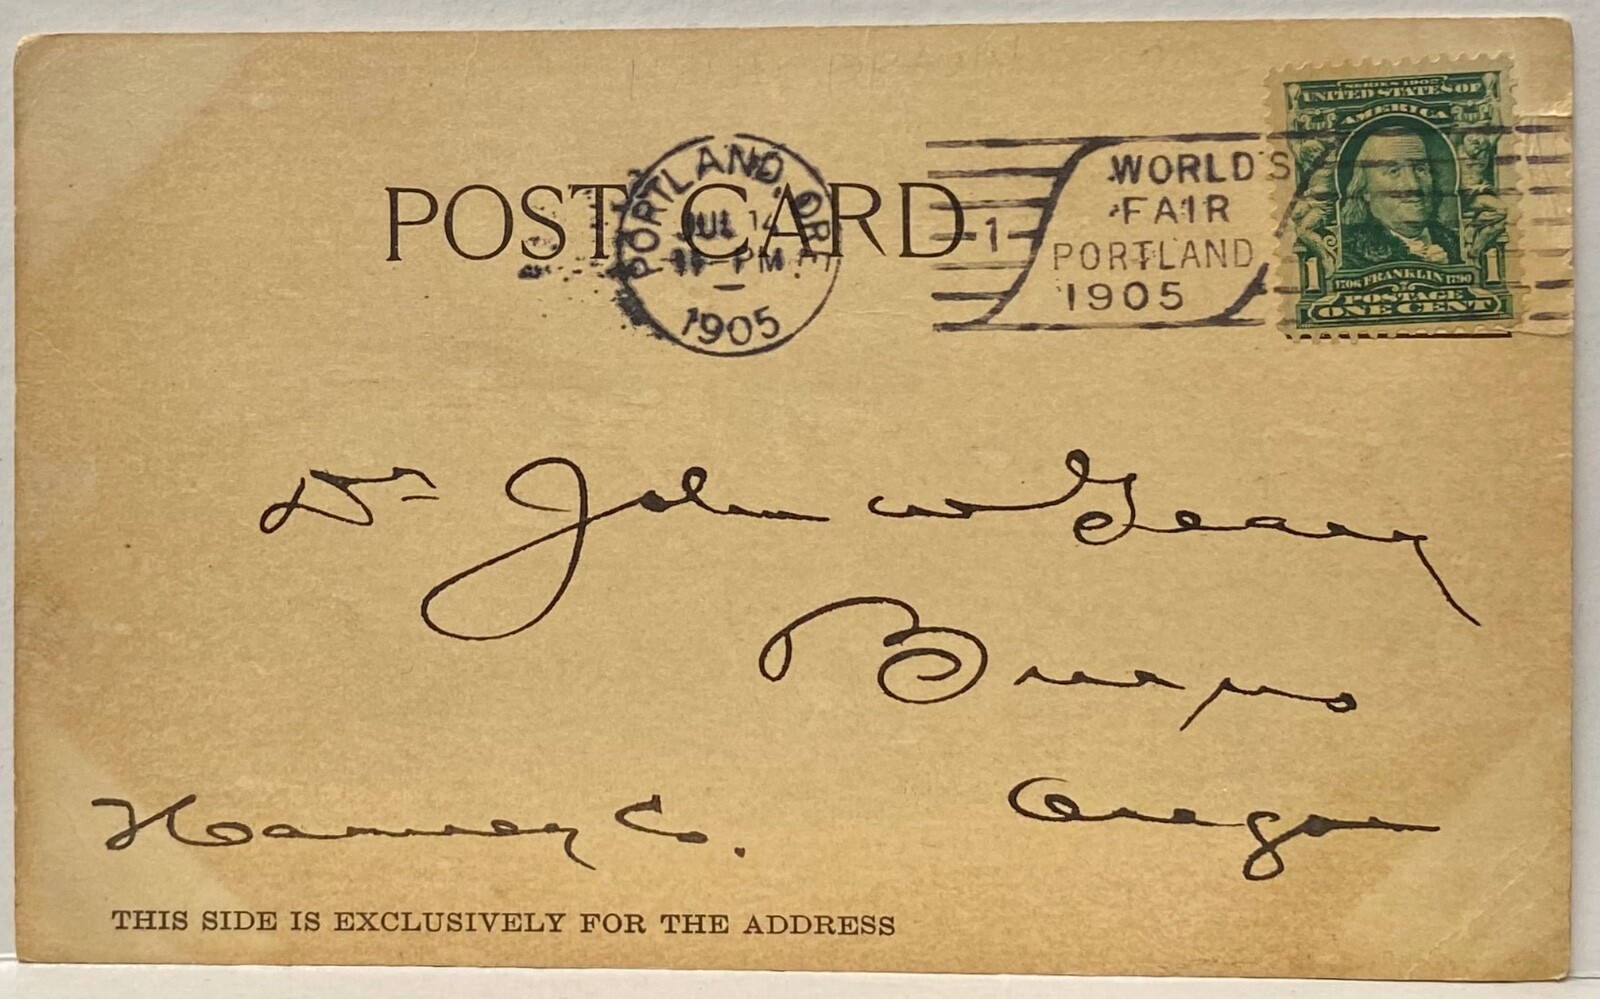 POST CARD
PORTLAND, ORE
JUL 14
PM
1905
1
WORLD'S
FAIR
PORTLAND
1905
SERIES 1902
UNITED STATES OF
AMERICA
1706 FRANKLIN 1790
1 POSTAGE 1
ONE CENT
Dr John W Geary
Burns
Harney Co. Oregon
THIS SIDE IS EXCLUSIVELY FOR THE ADDRESS